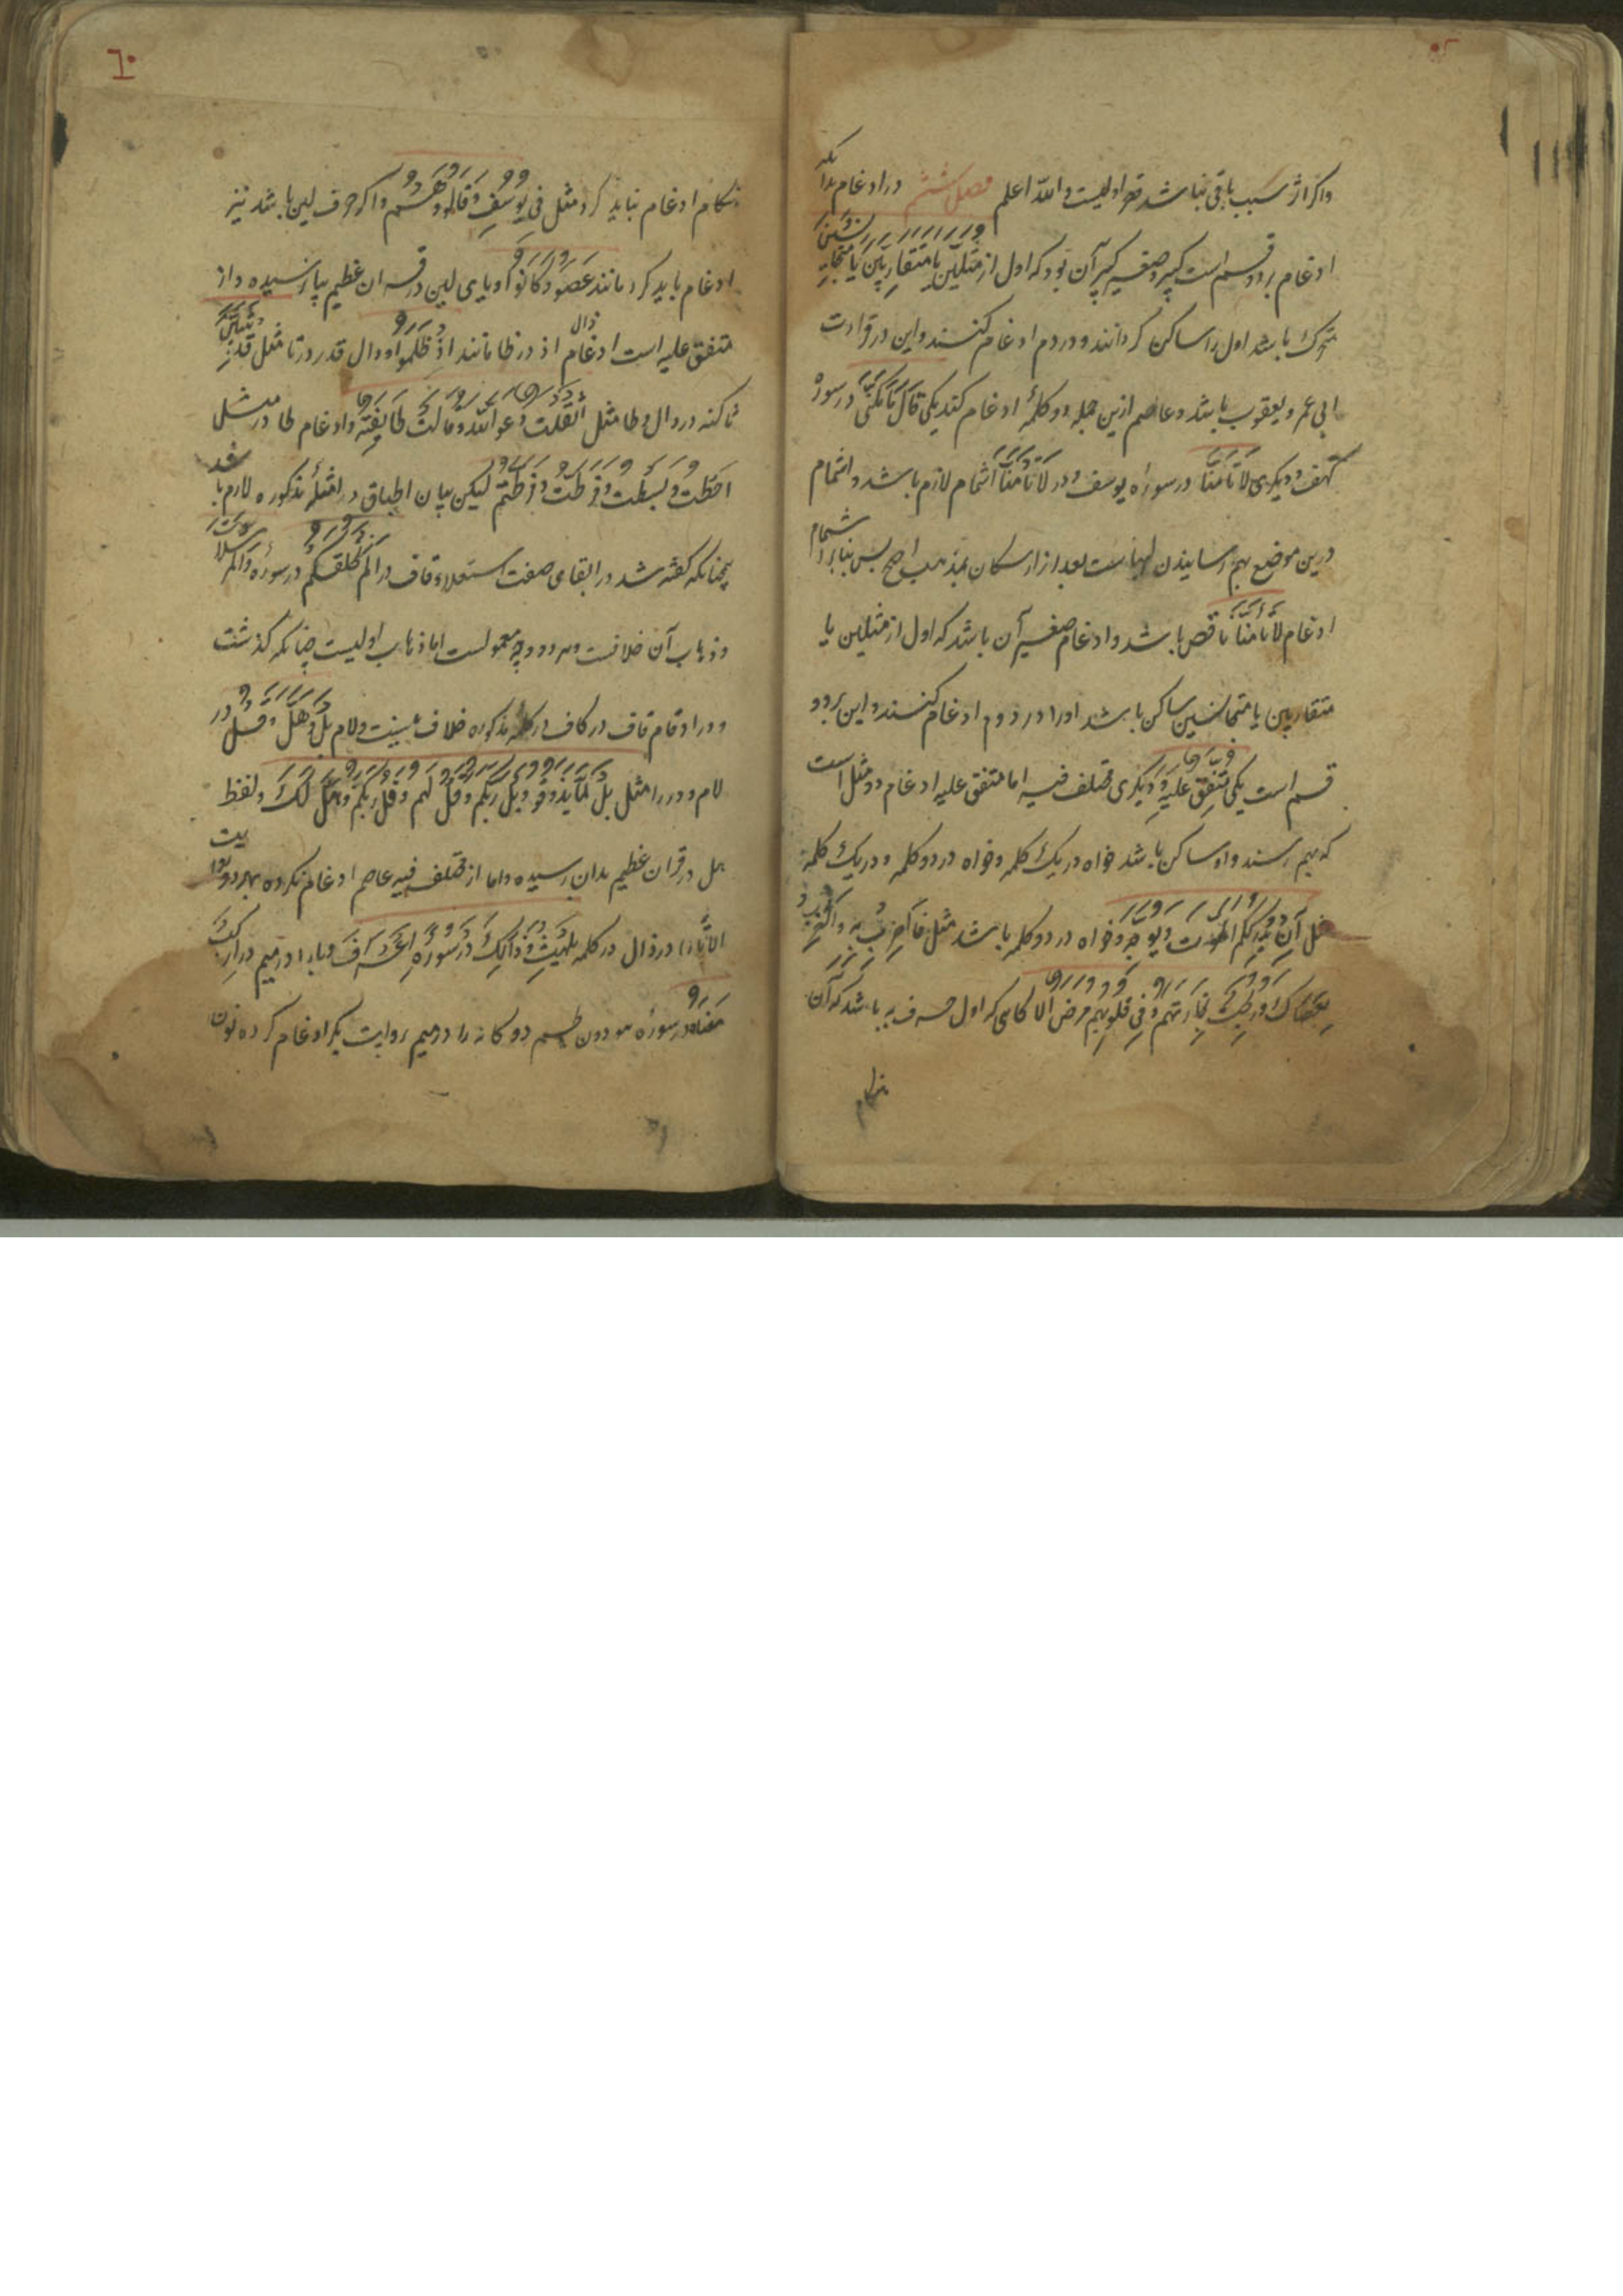 واکر اثر سبب باقی نباشد قصر اولیست والله اعلم فصل ششم در ادغام بدانکه
ادغام بر دو قسم است کبیر و صغیر کبیر آن بود که اول از مثلین یا متقاربین یا متجانسین
متحرک باشد اول را ساکن کردانند و در دوم ادغام کنند و این در قراءت
ابی عمر و یعقوب باشد و عاصم ازین جمله دو کلمه ادغام کند یکی قال ما مکنی در سوره
کهف و دیکری لا تامنا در سوره یوسف و در لا تامنا اشمام لازم باشد و اشمام
درین موضع بهم رسانیدن لبهاست بعد از اسکان بمذهب اصح پس بنابر اشمام
ادغام لا تامنا ناقص باشد و ادغام صغیر آن باشد که اول از مثلین یا
متقاربین یا متجانسین ساکن باشد او را در دوم ادغام کنند و این بر دو
قسم است یکی متفق علیه و دیکری مختلف فیه اما متفق علیه ادغام دو مثل است
که بهم رسند و اول ساکن باشد خواه در یک کلمه و خواه در دو کلمه و در یک کلمه
مثل آن یدرککم الموت و یوجهه و خواه در دو کلمه باشد مثل فاضرب به و اضرب
بعصاک و ربحت تجارتهم و فی قلوبهم مرض الا کاهی که اول حرف مد باشد که آن
هنکام
٦٠
هنکام ادغام نباید کرد مثل فی یوسف و قالوا و هم واکر حرف لین باشد نیز
ادغام باید کرد مانند عصوا و کانوا و یای لین در قران عظیم بیا نرسیده و از
متفق علیه است ادغام ذال اذ در ظا مانند اذ ظلموا و دال قد در تا مثل قد تبین
تا ساکنه در دال و طا مثل اثقلت دعوا الله و قالت طایفة و ادغام طا در تا مثل
احطت و بسطت و فرطت و فرطتم لیکن بیان اطباق در امثله مذکوره لازم باشد
همچنانکه کفته شد در ابقای صفت استعلاء قاف در الم نخلقکم در سوره والمرسلات
و ذهاب آن خلافست و هر دو وجه معمولست اما ذهاب اولیست چنانکه کذشت
و در ادغام قاف در کاف در کلمه مذکوره خلاف نیست و لام بل و هل و قل در
لام و در را مثل بل لما یذوقوا و بل ربکم و قل لهم و قل ربکم و هل لک و لفظ
هل در قران عظیم بدان نرسیده و اما از مختلف فیه عاصم ادغام نکرده بهر دو روایت
الا ثا را در ذال در کلمه یلهث ذلک در سوره اعراف و با را در میم در ارکب
معنا در سوره هود و نون طسم دو کانه را در میم روایت بکر ادغام کرده نون